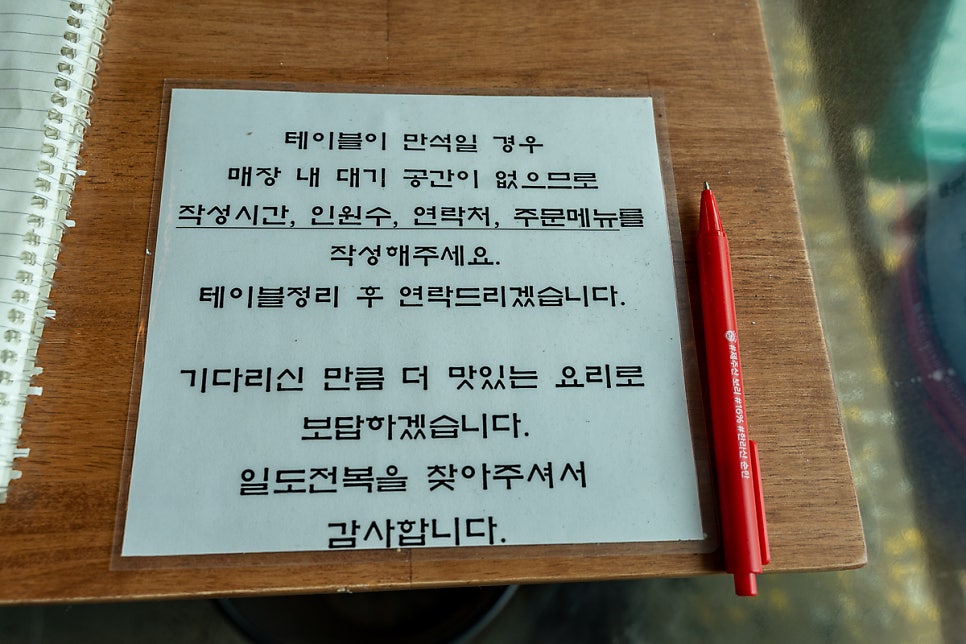 테이블이 만석일 경우
매장 내 대기 공간이 없으므로
작성시간, 인원수, 연락처, 주문메뉴를
작성해주세요.
테이블정리 후 연락드리겠습니다.
기다리신 만큼 더 맛있는 요리로
보답하겠습니다.
일도전복을 찾아주셔서
감사합니다.
#제주산 보리 #16% #한라산 순한